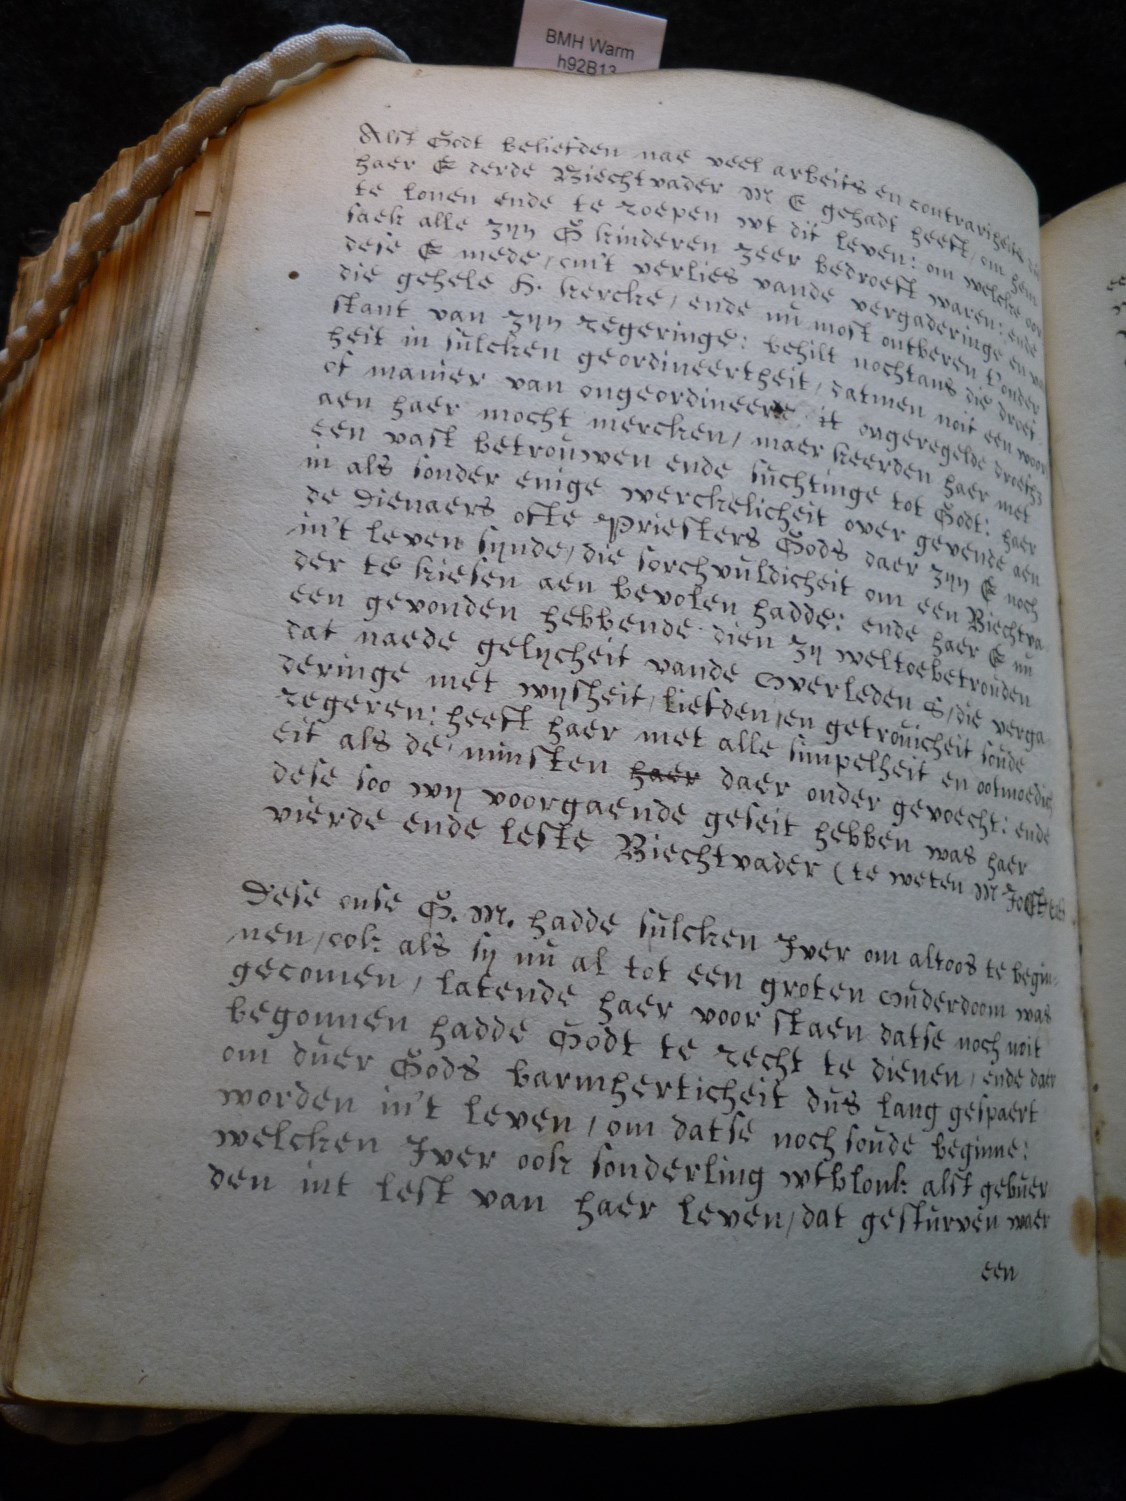 BMH Warm
h92B13
Alst Godt beliefden nae veel arbeits en contrariheits
haer E derde Biechtvader M E gehadt heeft, om hem
te lonen ende te roepen wt dit leven: om welcke oor
saek alle zyn G kinderen zeer bedroeft waren: ende
dese E mede, om't verlies vande vergaderinge en
die gehele H. kercke, ende nu most ontberen t'onder
stant van zyn regeringe: behilt nochtans die droef
heit in sulcken geordineertheit, datmen noit een woor
of manier van ongeordineerde ongeregelde
aen haer mocht mercken, maer keerden haer met
een vast betrouwen ende suchtinge tot Godt: haer
in als sonder enige werckelicheit over gevende aen
de dienaers ofte Priesters Gods daer zyn E noch
in't leven synde, die sorchvuldicheit om een Biechtva
der te kiesen aen bevolen hadde: ende haer E nu
een gevonden hebbende dien zy weltoebetrouden
dat naede gelycheit vande Overleden S, die verga
deringe met wysheit, liefden, en getrouicheit soude
regeren: heeft haer met alle simpelheit en ootmoedich
eit als de minsten haer daer onder gevoecht: ende
dese soo wy voorgaende geseit hebben was haer
vierde ende leste Biechtvader (te weten M
Dese onse G. M. hadde sulcken Iver om altoos te begin-
nen, ook als sy nu al tot een groten Ouderdoom was
gecomen, latende haer voor staen datse noch noit
begonnen hadde Godt te recht te dienen, ende daer
om duer Gods barmherticheit dus lang gespaert
worden in't leven, om datse noch soude beginne:
welcken Iver ook sonderling wtblonk alst gebuer
den int lest van haer leven, dat gesturven waer
een